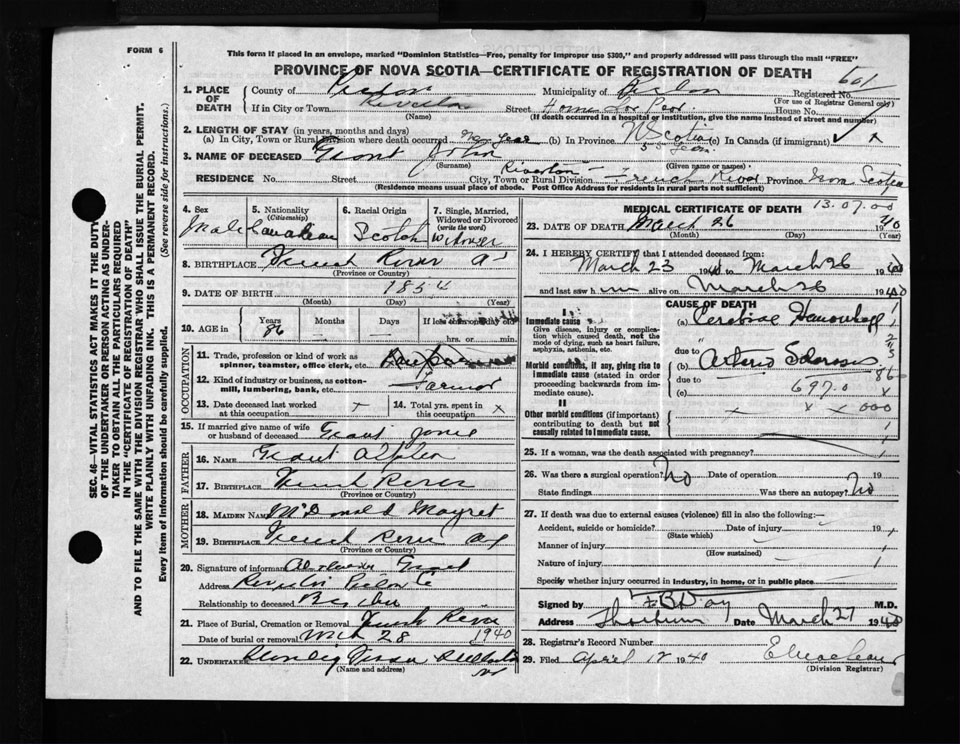 FORM 6
This form if placed in an envelope, marked "Dominion Statistics—Free, penalty for improper use $300," and properly addressed will pass through the mail "FREE"
PROVINCE OF NOVA SCOTIA—CERTIFICATE OF REGISTRATION OF DEATH
601
SEC. 46—VITAL STATISTICS ACT MAKES IT THE DUTY
OF THE UNDERTAKER OR PERSON ACTING AS UNDER-
TAKER TO OBTAIN ALL THE PARTICULARS REQUIRED
IN THE "CERTIFICATE OF REGISTRATION OF DEATH"
AND TO FILE THE SAME WITH THE DIVISION REGISTRAR WHO SHALL ISSUE THE BURIAL PERMIT.
WRITE PLAINLY WITH UNFADING INK. THIS IS A PERMANENT RECORD.
Every item of information should be carefully supplied. (See reverse side for instructions.)
1. PLACE OF DEATH
County of Pictou Municipality of Pictou Registered No.
(For use of Registrar General only)
If in City or Town Riverton Street Home for Poor House No.
(Name) (If death occurred in a hospital or institution, give the name instead of street and number)
2. LENGTH OF STAY (in years, months and days)
(a) In City, Town or Rural Division where death occurred One year (b) In Province N Scotia (c) In Canada (if immigrant) x
3. NAME OF DECEASED Grant John
(Surname) (Given name or names)
RESIDENCE No. Street Riverton City, Town or Rural Division French River Province Nova Scotia
(Residence means usual place of abode. Post Office Address for residents in rural parts not sufficient)
4. Sex
Male
5. Nationality (Citizenship)
Canadian
6. Racial Origin
Scotch
7. Single, Married, Widowed or Divorced (write the word)
Widower
8. BIRTHPLACE French River
(Province or Country)
9. DATE OF BIRTH 1854
(Month) (Day) (Year)
10. AGE in Years 86 Months Days If less than one day old
hrs. or min.
OCCUPATION
11. Trade, profession or kind of work as spinner, teamster, office clerk, etc.
12. Kind of industry or business, as cotton-mill, lumbering, bank, etc. Farmer
13. Date deceased last worked at this occupation
14. Total yrs. spent in this occupation x
15. If married give name of wife or husband of deceased Grant
FATHER
16. NAME Grant
17. BIRTHPLACE French River
(Province or Country)
MOTHER
18. MAIDEN NAME McDonald
19. BIRTHPLACE French River
(Province or Country)
20. Signature of informant Alexander Grant
Address
Relationship to deceased
21. Place of Burial, Cremation or Removal French River
Date of burial or removal Mch 28 1940
22. UNDERTAKER
(Name and address)
MEDICAL CERTIFICATE OF DEATH 13.07.00
23. DATE OF DEATH March 26 1940
(Month) (Day) (Year)
24. I HEREBY CERTIFY that I attended deceased from:
March 23 1940 to March 26 1940
and last saw him alive on March 26 1940
CAUSE OF DEATH
I
Immediate cause
Give disease, injury or complication which caused death, not the mode of dying, such as heart failure, asphyxia, asthenia, etc.
(a) Cerebral Hemorrhage
due to
Morbid conditions, if any, giving rise to immediate cause (stated in order proceeding backwards from immediate cause).
(b) Arterio Sclerosis
due to 86
(c) 697.0 x
II
Other morbid conditions (if important) contributing to death but not causally related to immediate cause.
x x x 000
25. If a woman, was the death associated with pregnancy?
26. Was there a surgical operation? No Date of operation 19
State findings Was there an autopsy? No
27. If death was due to external causes (violence) fill in also the following:—
Accident, suicide or homicide? Date of injury 19
(State which)
Manner of injury
(How sustained)
Nature of injury
Specify whether injury occurred in industry, in home, or in public place
Signed by Day M.D.
Address Thorburn Date March 27 1940
28. Registrar's Record Number
29. Filed April 12 1940
(Division Registrar)